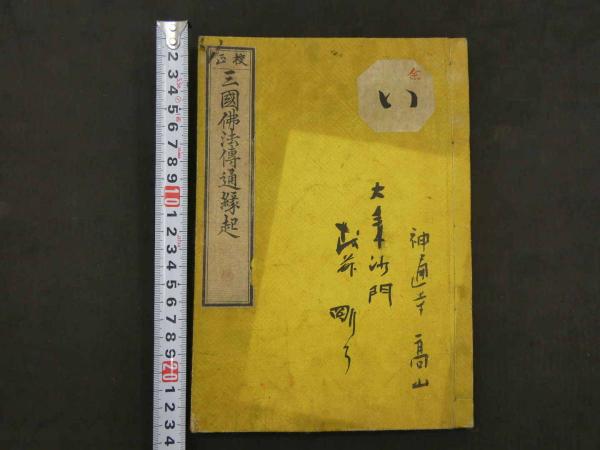 校正
三國佛法傳通緣起
い
神通寺 高山
大乗沙門
剛
1 2 3 4 5 6 7 8 9 10 1 2 3 4 5 6 7 8 9 20 1 2 3 4